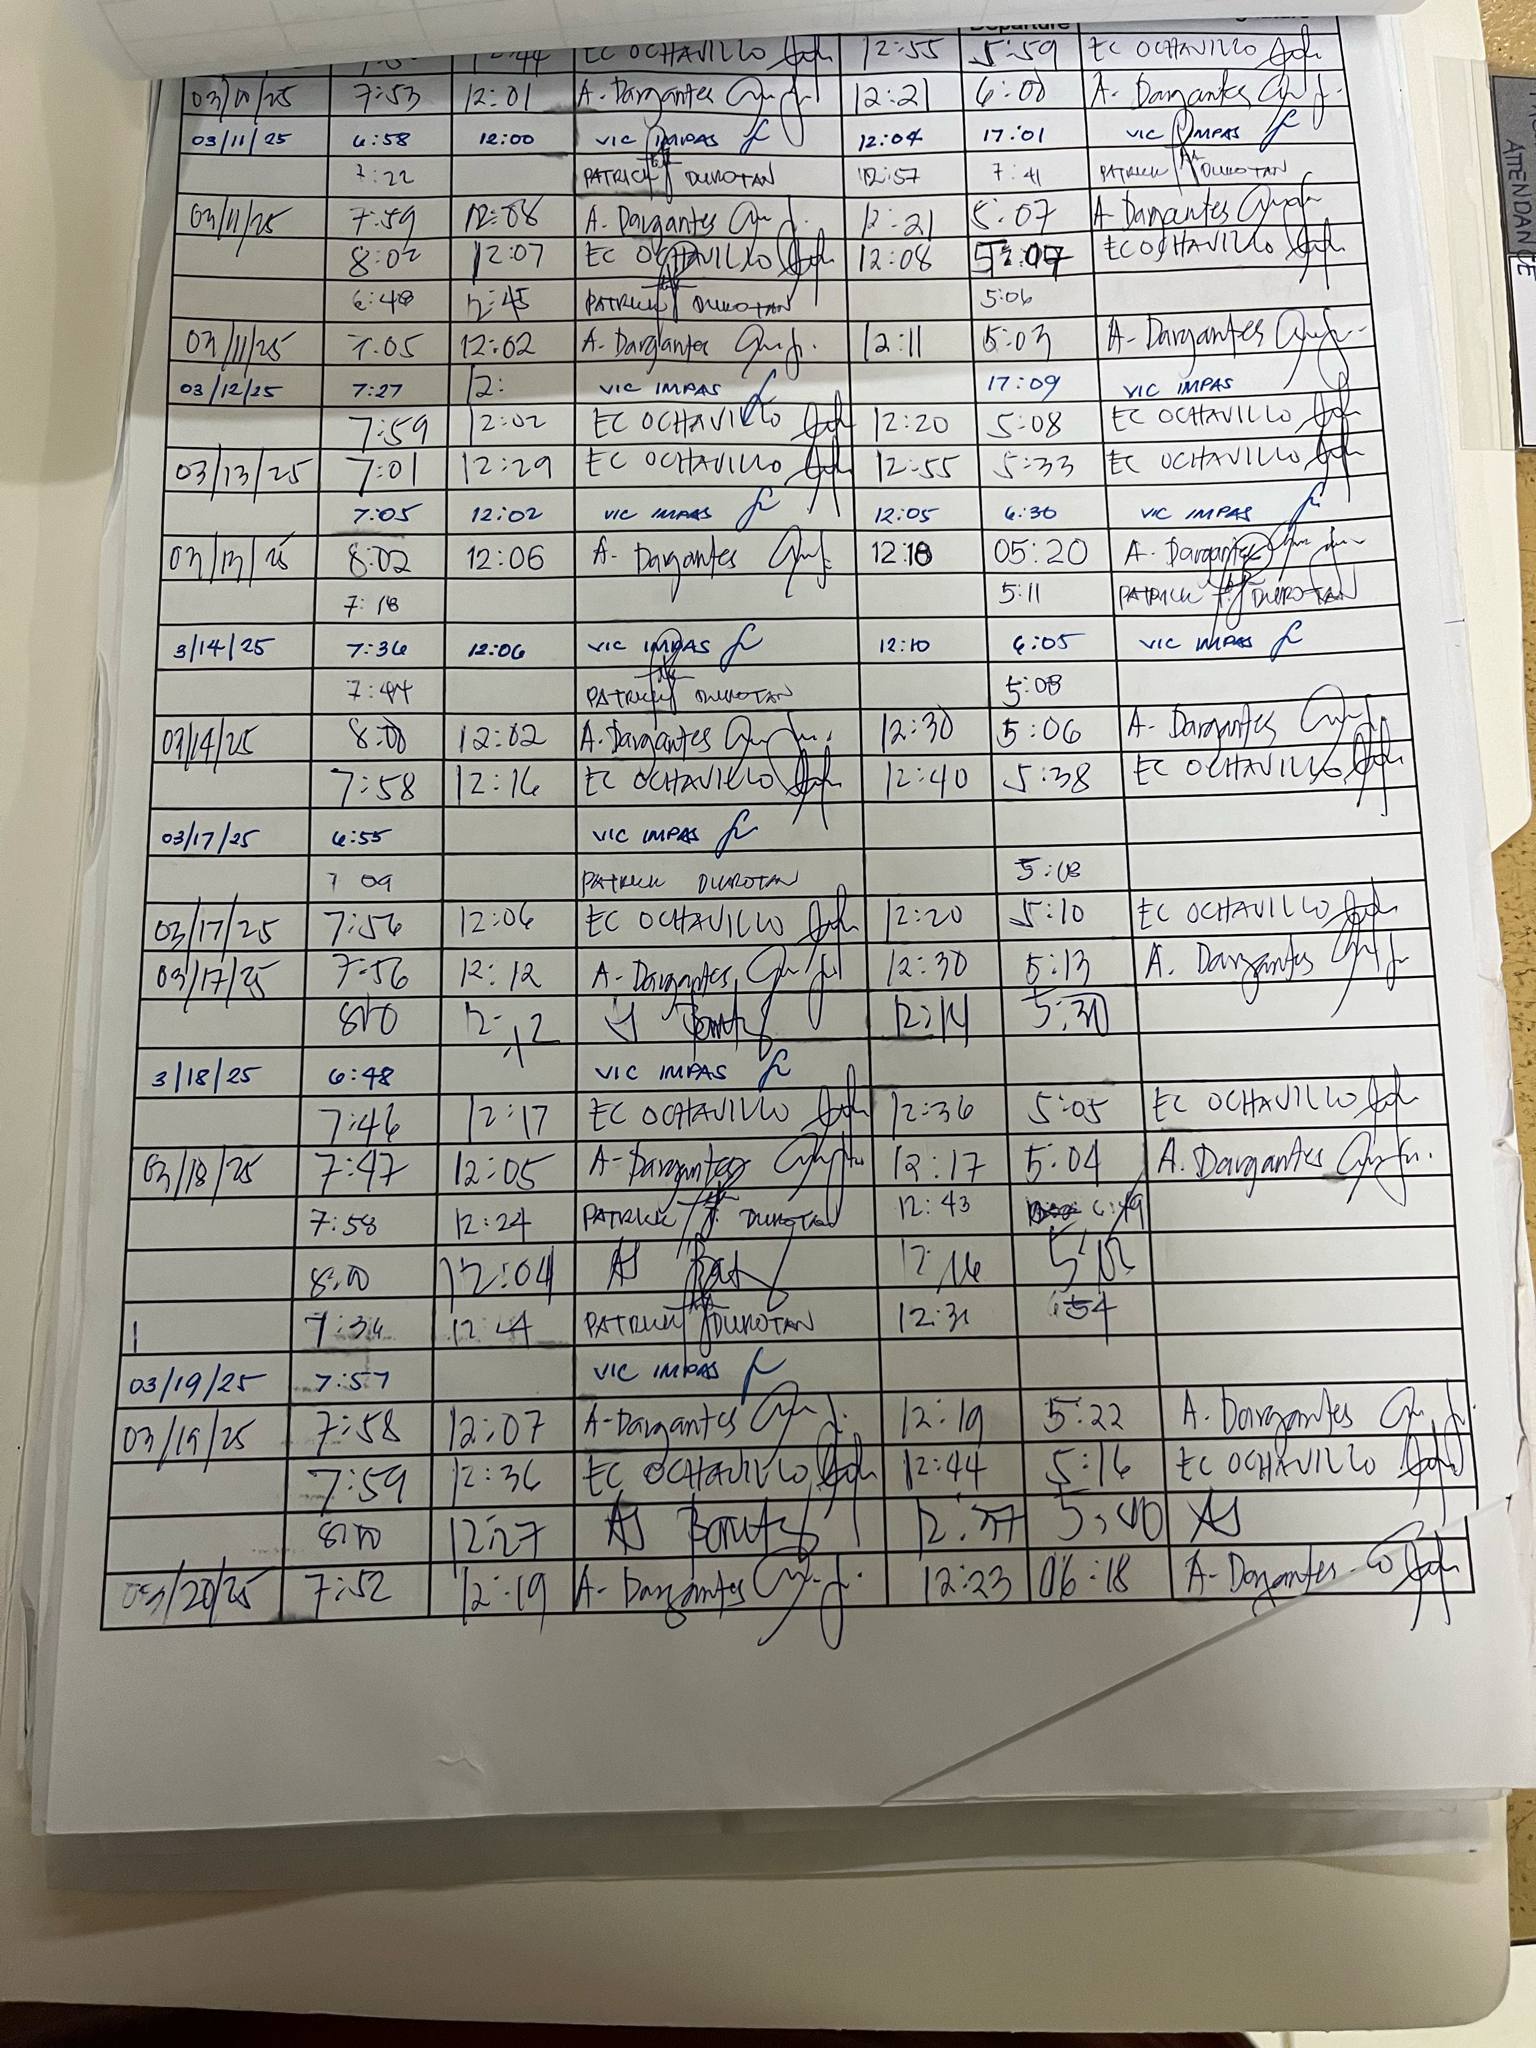 Departure
12:44 EC OCHAVILLO 12:55 5:59 EC OCHAVILLO
03/10/25 7:53 12:01 A. Dargantes 12:21 6:00 A. Dargantes
03/11/25 6:58 12:00 VIC IMPAS 12:04 17:01 VIC IMPAS
7:22 PATRICK DUROTAN 12:57 7:41 PATRICK DUROTAN
03/11/25 7:59 12:08 A. Dargantes 12:21 5:07 A Dargantes
8:02 12:07 EC OCHAVILLO 12:08 5:07 EC OCHAVILLO
6:48 12:45 PATRICK DUROTAN 5:06
03/11/25 7:05 12:02 A- Dargantes 12:11 5:03 A- Dargantes
03/12/25 7:27 12: VIC IMPAS 17:09 VIC IMPAS
7:59 12:02 EC OCHAVILLO 12:20 5:08 EC OCHAVILLO
03/13/25 7:01 12:29 EC OCHAVILLO 12:55 5:33 EC OCHAVILLO
7:05 12:02 VIC IMPAS 12:05 6:30 VIC IMPAS
03/13/25 8:02 12:06 A- Dargantes 12:18 05:20 A- Dargantes
7:18 5:11 PATRICK DUROTAN
3/14/25 7:36 12:06 VIC IMPAS 12:10 6:05 VIC IMPAS
7:44 PATRICK DUROTAN 5:08
03/14/25 8:00 12:02 A. Dargantes 12:30 5:06 A- Dargantes
7:58 12:16 EC OCHAVILLO 12:40 5:38 EC OCHAVILLO
03/17/25 6:55 VIC IMPAS
7 09 PATRICK DUROTAN 5:08
03/17/25 7:56 12:06 EC OCHAVILLO 12:20 5:10 EC OCHAVILLO
03/17/25 7:56 12:12 A- Dargantes 12:30 5:13 A. Dargantes
12:12 12:14 5:30
3/18/25 6:48 VIC IMPAS
7:46 12:17 EC OCHAVILLO 12:36 5:05 EC OCHAVILLO
03/18/25 7:47 12:05 A- Dargantes 12:17 5:04 A. Dargantes
7:58 12:24 PATRICK DUROTAN 12:43 6:49
8:00 12:04 12:16
7:36 PATRICK DUROTAN 12:31
03/19/25 7:57 VIC IMPAS
03/19/25 7:58 12:07 A- Dargantes 12:19 5:22 A. Dargantes
7:59 12:36 EC OCHAVILLO 12:44 5:16 EC OCHAVILLO
8:00 12:27 12:37 5:40
03/20/25 7:52 12:19 A- Dargantes 12:23 06:18 A- Dargantes
ATTENDANCE